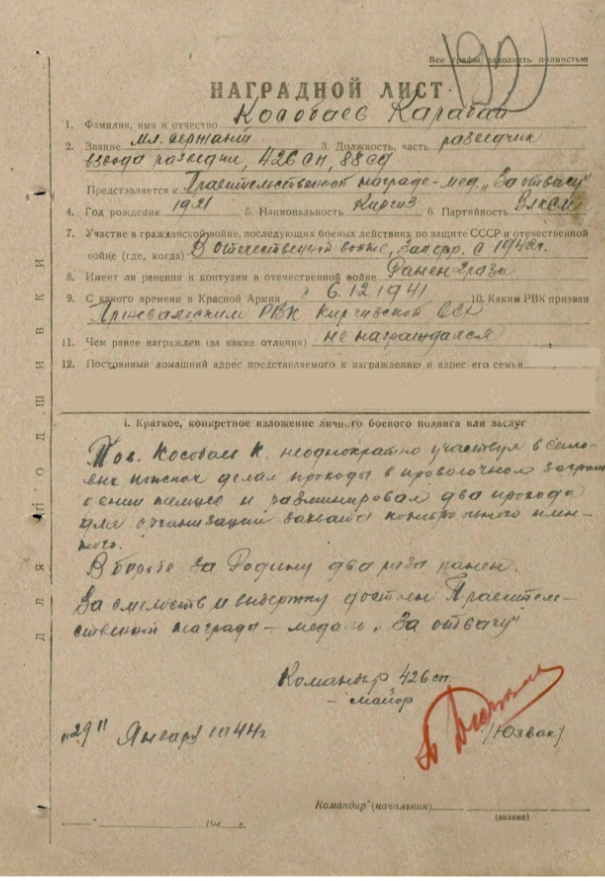 Все графы заполнять полностью
НАГРАДНОЙ ЛИСТ
1. Фамилия, имя и отчество Кособаев Карабай
2. Звание Мл. сержант 3. Должность, часть разведчик
взвода разведки, 426 сп, 88 сд
Представляется к Правительственной награде - мед. „За отвагу"
4. Год рождения 1921 5. Национальность Киргиз 6. Партийность ВЛКСМ
7. Участие в гражданской войне, последующих боевых действиях по защите СССР и отечественной
войне (где, когда) В отечественной войне, Зап. фр. с 1942г.
8. Имеет ли ранения и контузии в отечественной войне Ранен 2 раза
9. С какого времени в Красной Армии с 6.12.1941 10. Каким РВК призван
Пржевальским РВК Киргизской ССР
11. Чем ранее награжден (за какие отличия) не награждался
12. Постоянный домашний адрес представляемого к награждению и адрес его семьи
I. Краткое, конкретное изложение личного боевого подвига или заслуг
Тов. Кособаев К. неоднократно участвуя в сило-
вых поисках делал проходы в проволочном загражд
ении немцев и разминировал два прохода
для организации захвата контрольного плен-
ного.
В борьбе за Родину два раза ранен.
За смелость и выдержку достоен Правитель-
ственной награды - медаль „За отвагу"
Командир 426 сп.
- майор
(Юзвак)
„29" Января 1944г.
Командир (начальник)
(звание)
194 г.
ДЛЯ ПОДШИВКИ